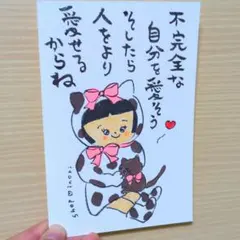 不完全な
自分を愛そう
そしたら
人をより
愛せる
からね